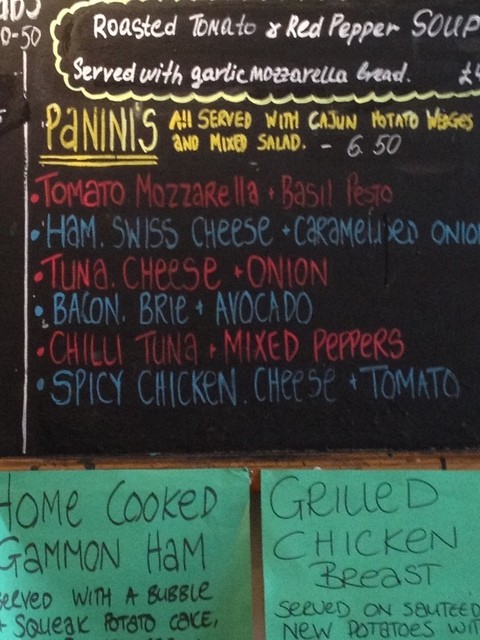 0-50
Roasted Tomato & Red Pepper SOUP
Served with garlic mozzarella bread.
PaNiNi'S All SERVED WITH CAJUN POTATO WEDGES
AND MIXED SALAD. - 6.50
• TOMATO MOZZARELLA + BASIL PESTO
• HAM. SWISS CHEESE + CARAMELISED ONION
• TUNA. CHEESE + ONION
• BACON. BRIE + AVOCADO
• CHILLI TUNA + MIXED PEPPERS
• SPICY CHICKEN. CHEESE + TOMATO
HOME COOKED
GAMMON HAM
SERVED WITH A BUBBLE
+ SQUEAK POTATO CAKE,
GRILLED
CHICKEN
BREAST
SERVED ON SAUTEED
NEW POTATOES WIT